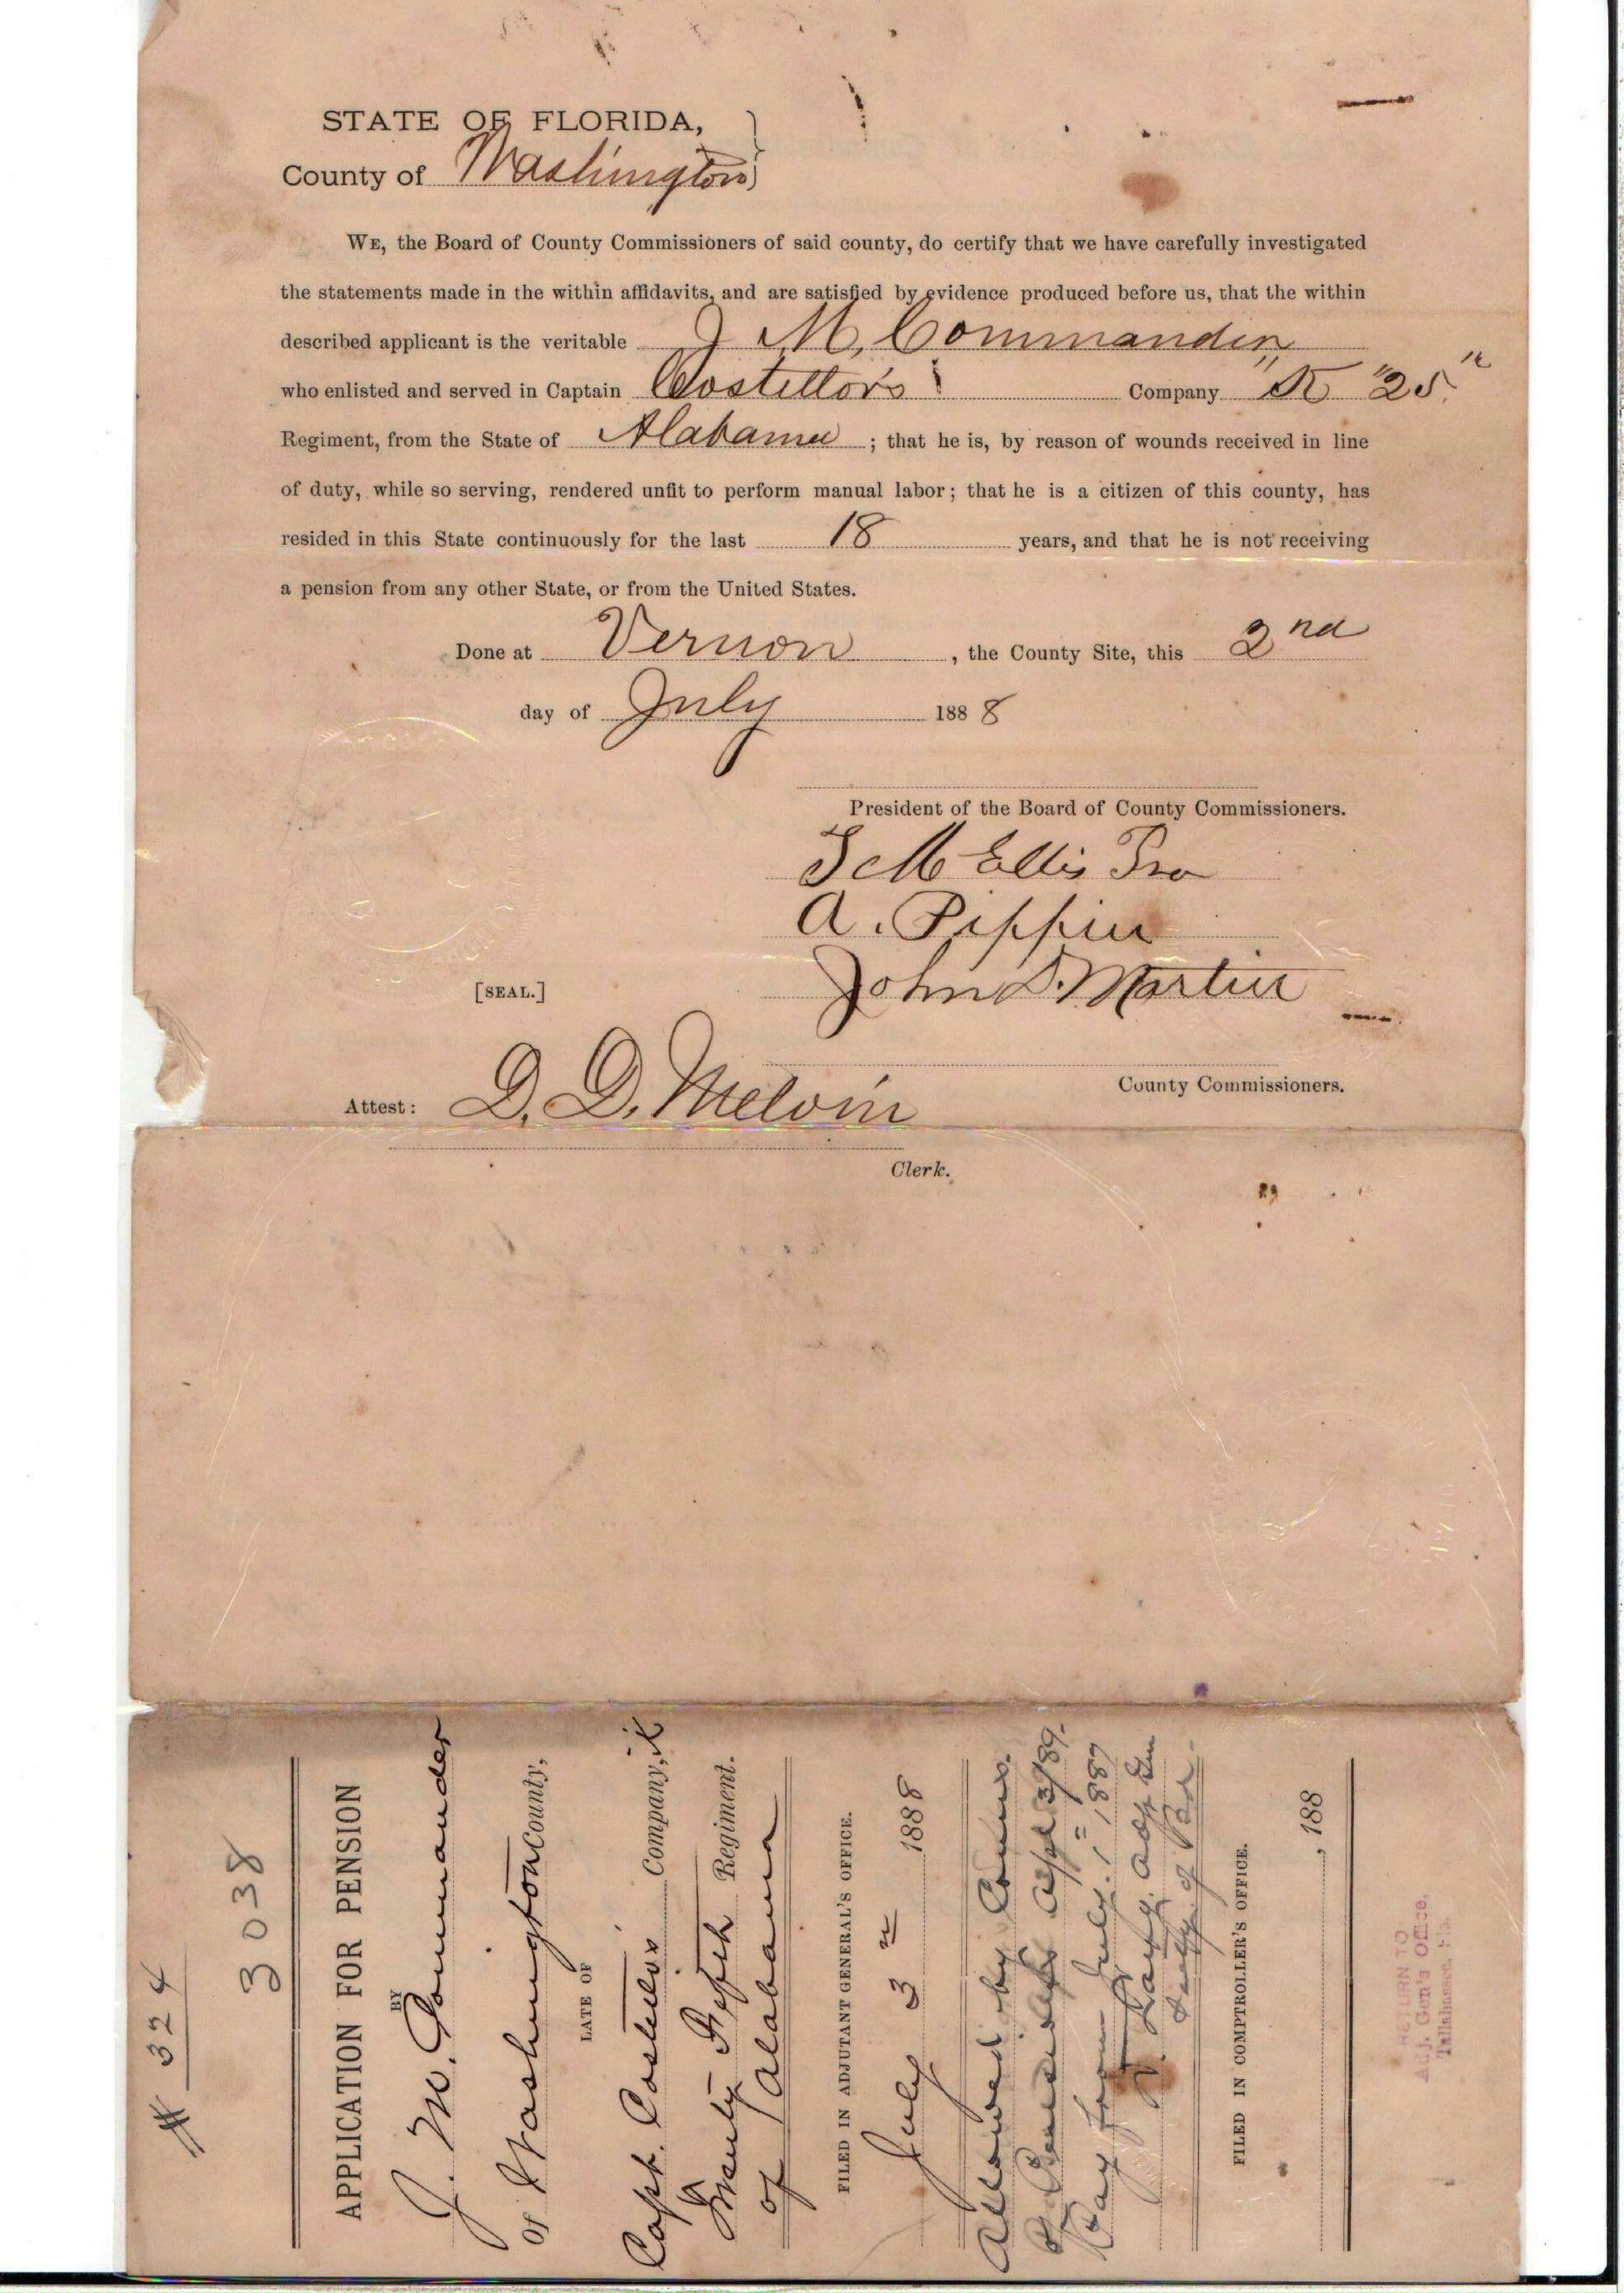 STATE OF FLORIDA,
County of Washington
WE, the Board of County Commissioners of said county, do certify that we have carefully investigated
the statements made in the within affidavits, and are satisfied by evidence produced before us, that the within
described applicant is the veritable J M. Commander
who enlisted and served in Captain Costellors Company "K" 25"
Regiment, from the State of Alabama ; that he is, by reason of wounds received in line
of duty, while so serving, rendered unfit to perform manual labor; that he is a citizen of this county, has
resided in this State continuously for the last 18 years, and that he is not receiving
a pension from any other State, or from the United States.
Done at Vernon , the County Site, this 2nd
day of July 188 8
President of the Board of County Commissioners.
M Ellis
A. Pippin
John D. Martin
[SEAL.]
County Commissioners.
Attest: D. D. Melvin
Clerk.
# 324
3038
APPLICATION FOR PENSION
BY
J. M. Commander
Of Washington County,
LATE OF
Capt. Costellos Company, K
Twenty-Fifth Regiment.
of Alabama
FILED IN ADJUTANT GENERAL'S OFFICE.
July 3 1888
Allowed by Comrs.
Apl 3/89.
Pay from July. 1= 1887
D. Lang. Adjt Gen
Secty of Bd.
FILED IN COMPTROLLER'S OFFICE.
, 188
RETURN TO
Adj. Gen's Office,
Tallahassee, Fla.